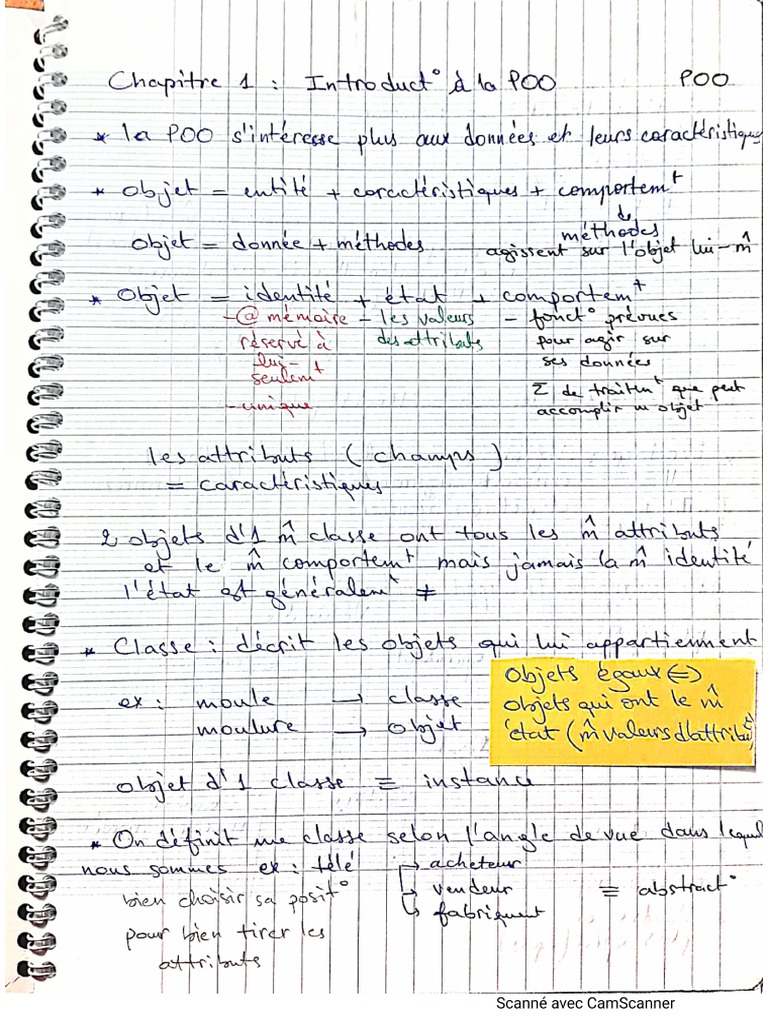 Chapitre 1 : Introduct° à la POO POO
* la POO s'intéresse plus aux données et leurs caractéristiques
* Objet = entité + caractéristiques + comportemᵗ
↓
méthodes
Objet = donnée + méthodes agissent sur l'objet lui-m̂
* Objet = identité + état + comportemᵗ
- @ mémoire - les valeurs - fonct° prévues
réservé à des attributs pour agir sur
lui- ses données
seulemᵗ
Σ de traitemᵗ que peut
- unique accomplir un objet
les attributs ( champs )
= caractéristiques
2 objets d'1 m̂ classe ont tous les m̂ attributs
et le m̂ comportemᵗ mais jamais la m̂ identité
l'état est généralemᵗ ≠
* Classe : décrit les objets qui lui appartiennent
Objets égaux <=>
objets qui ont le m̂
état (m̂ valeurs d'attributs)
ex : moule → classe
moulure → objet
objet d'1 classe ≡ instance
* On définit une classe selon l'angle de vue dans lequel
nous sommes ex : télé → acheteur
→ vendeur ≡ abstract°
→ fabriquent
bien choisir sa posit°
pour bien tirer les
attributs
Scanné avec CamScanner